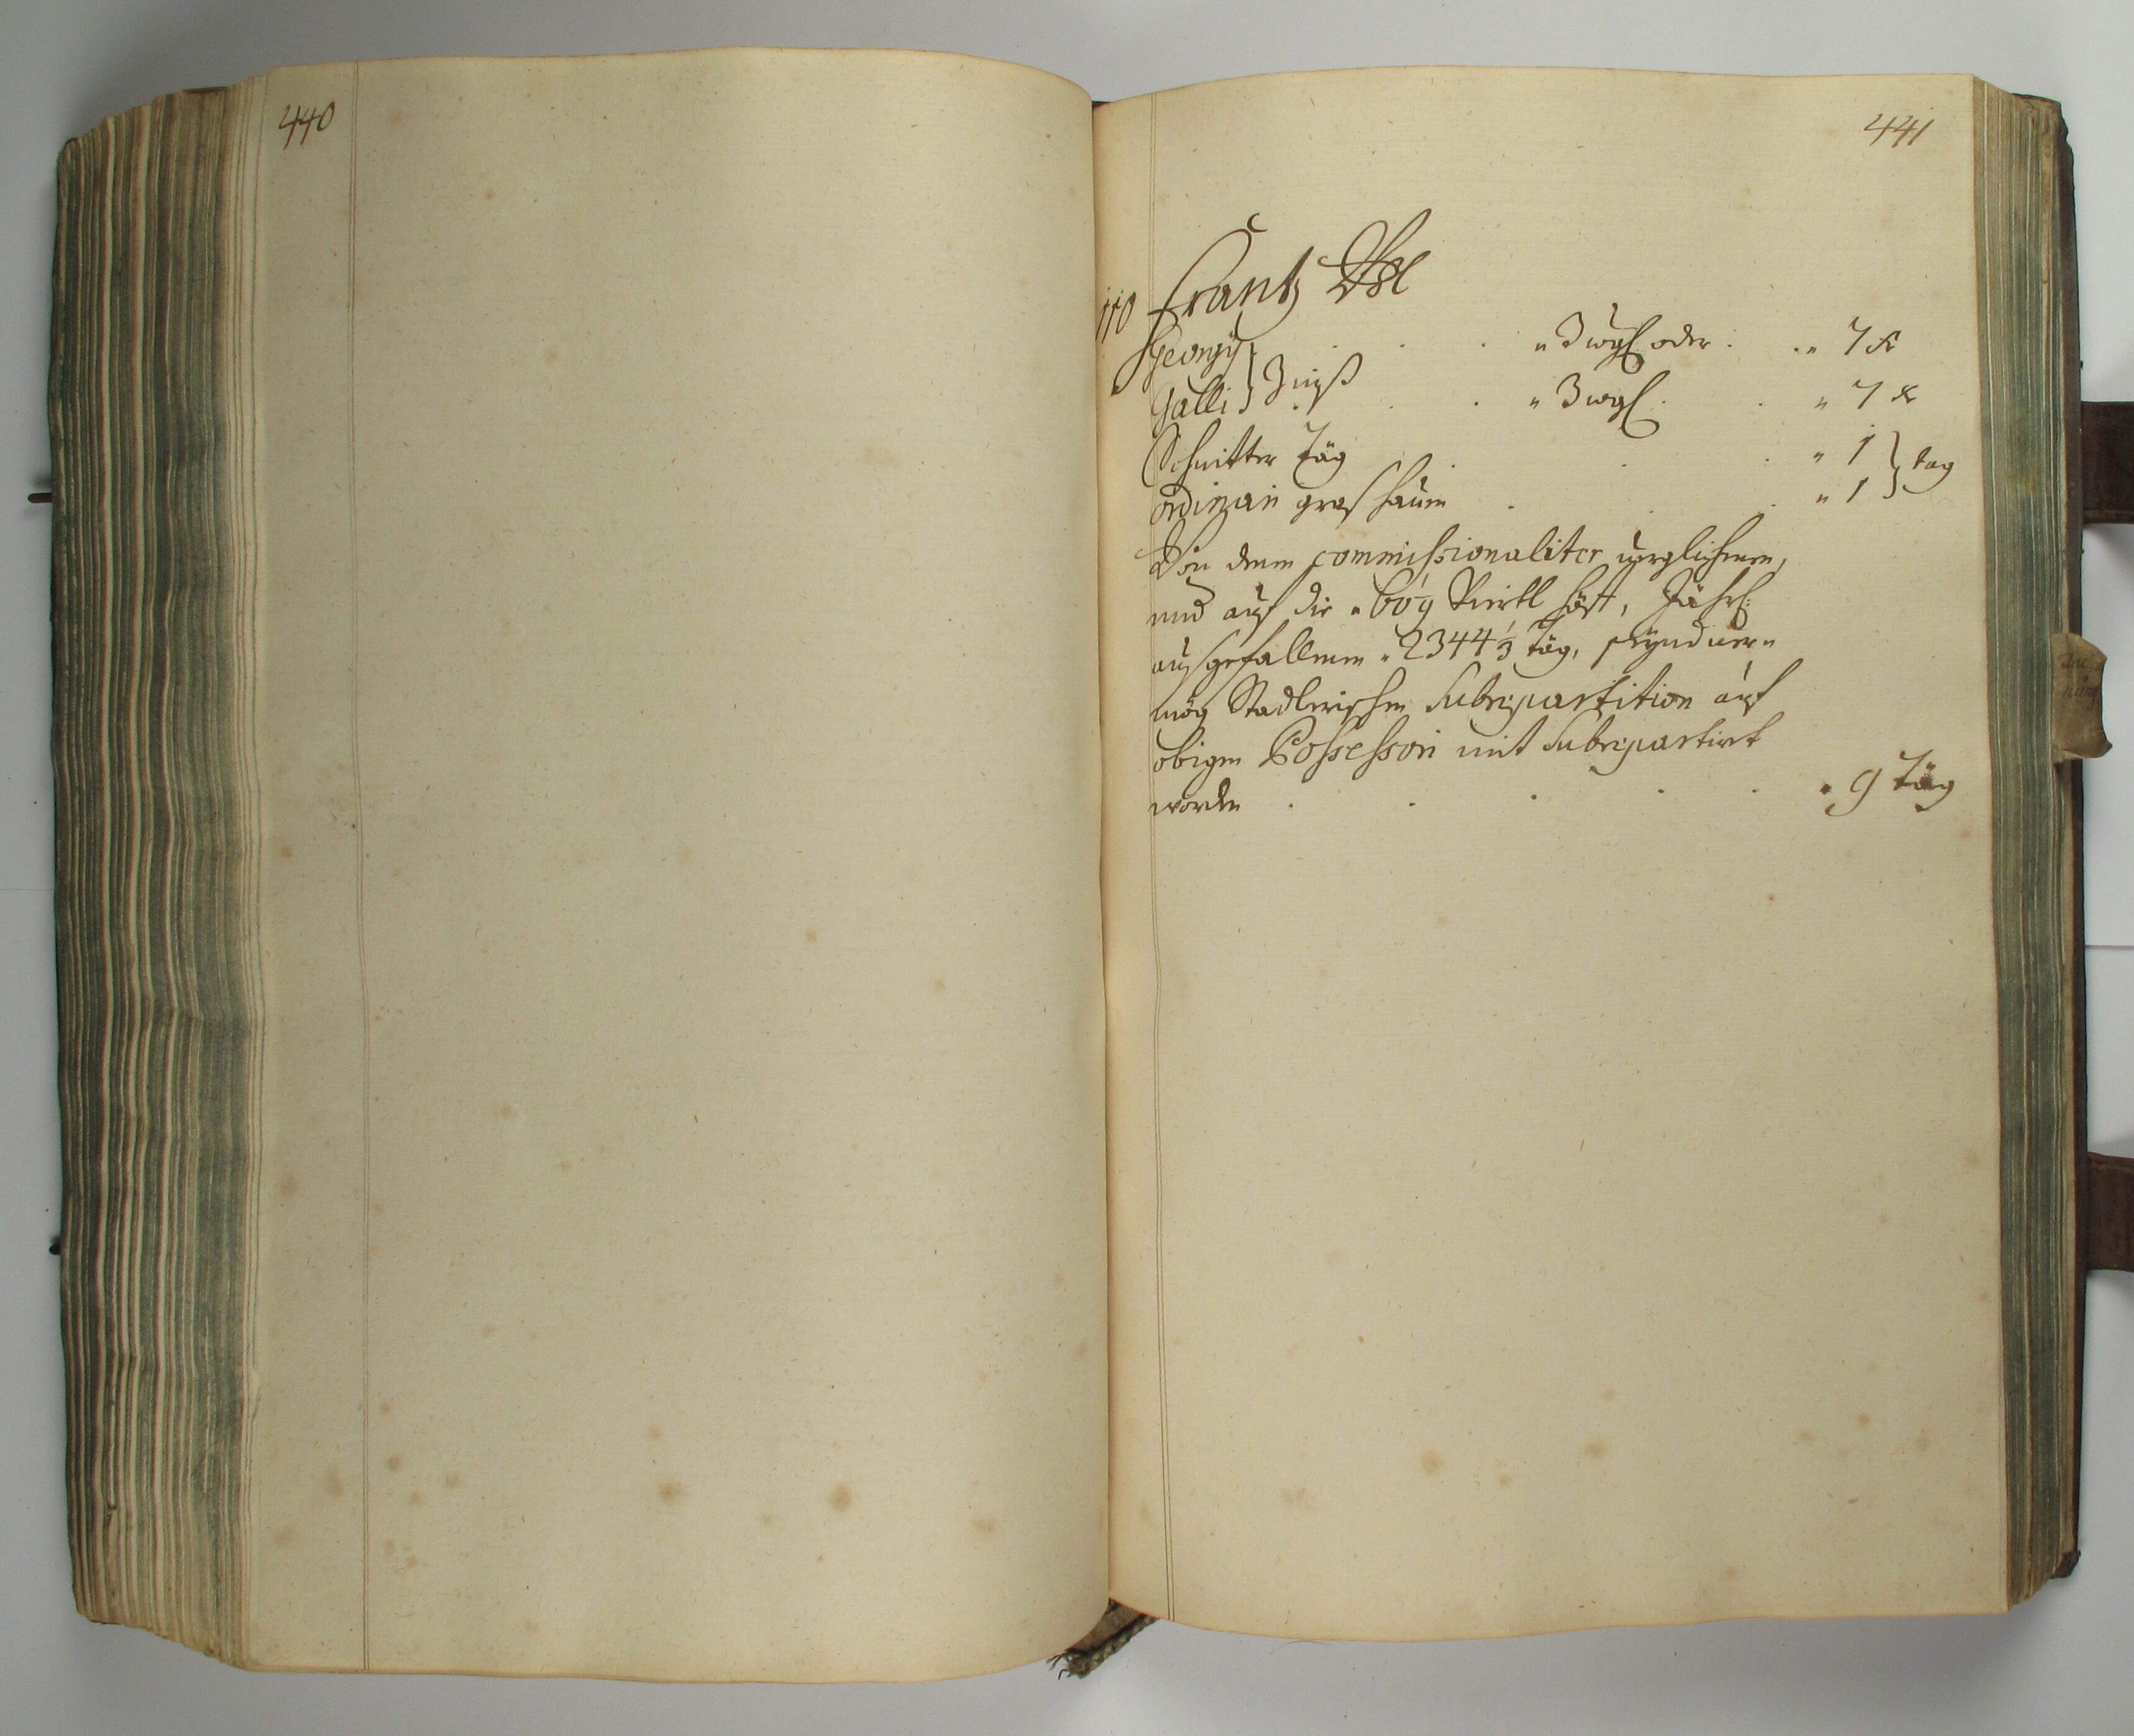 440
441
110 Frantz
Georgÿ } Zinß . . . „ 3 wgl. oder . . „ 7 xr
Galli „ 3 wgl. . „ 7 xr
Schnitter Täg . . . „ 1 } tag
ordinari graß hauen . . . „ 1
Von denen commissionaliter verglichenen,
und auf die „ 669 Viertl häft, Jährl:
außgefallenen „ 2344 1/3 Täg, seynd ver-
mög Stadlerischen Subrepartition auf
obigen Possessori mit Subrepartirt
worden . . . . . „ 9 Täg